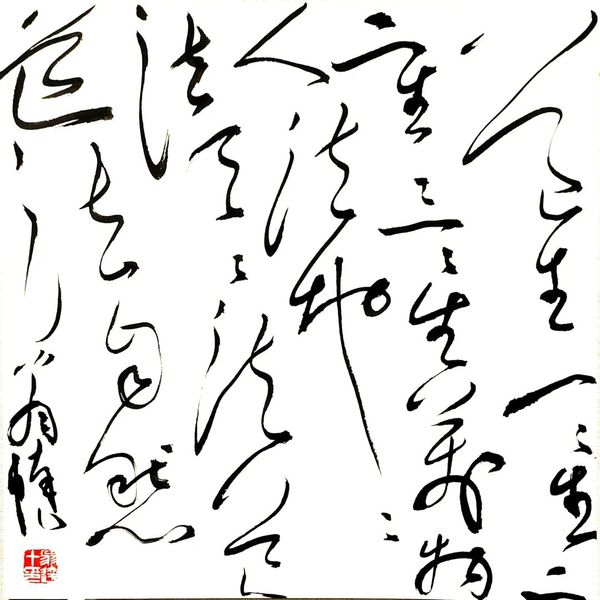 道生一々生二
二生三々生萬物
人法地々
法天々法道
道法自然